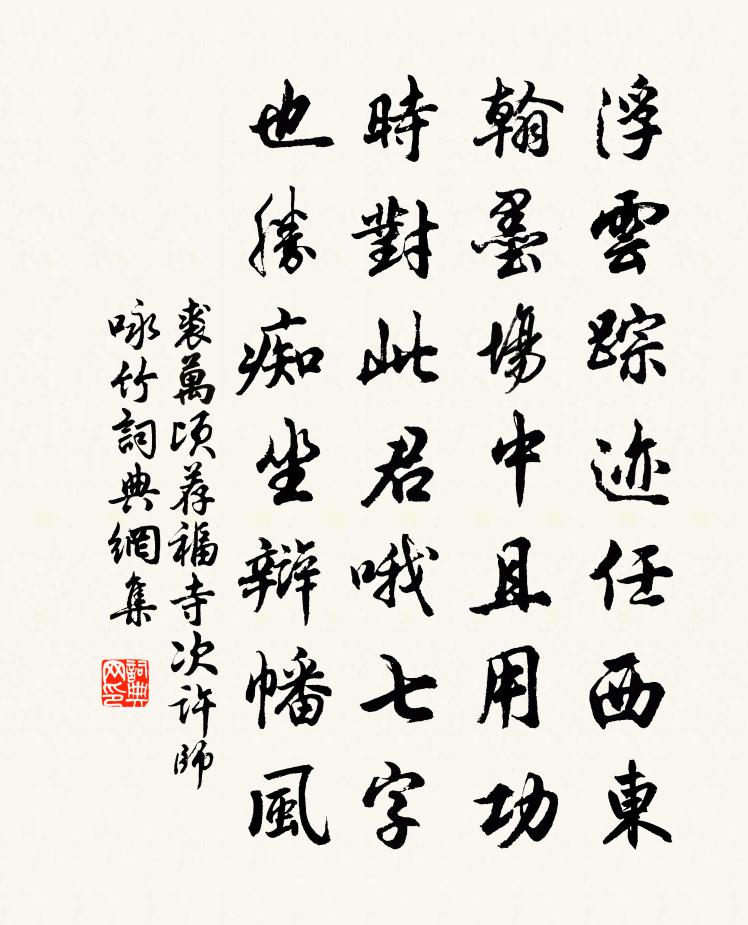 浮雲踪迹任西東
翰墨場中且用功
時對此君哦七字
也勝痴坐辯幡風
裘萬頃荐福寺次許師
咏竹詞典網集
詞典网印